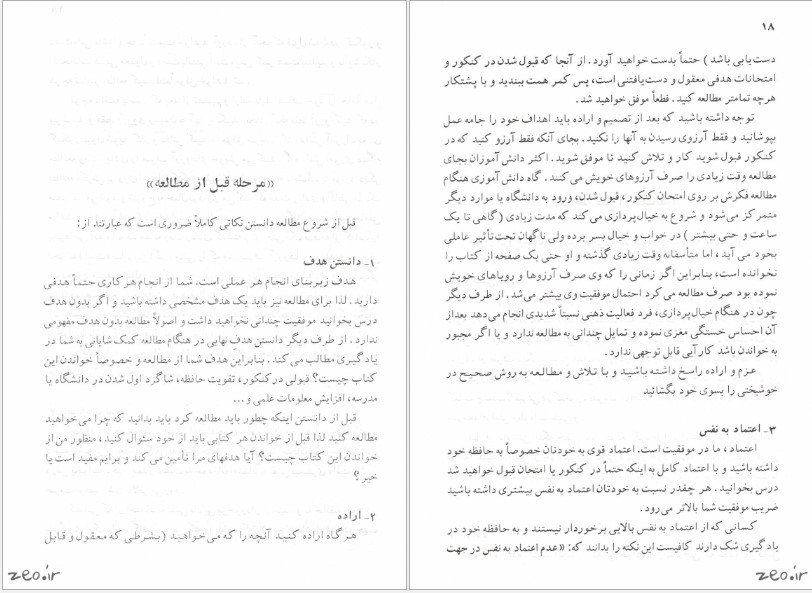 «مرحله قبل از مطالعه»
قبل از شروع مطالعه دانستن نکاتی کاملاً ضروری است که عبارتند از:
۱ـ دانستن هدف
هدف زیربنای انجام هر عملی است. شما از انجام هر کاری حتماً هدفی
دارید. لذا برای مطالعه نیز باید یک هدف مشخصی داشته باشید و اگر بدون هدف
درس بخوانید موفقیت چندانی نخواهید داشت و اصولاً مطالعه بدون هدف مفهومی
ندارد. از طرف دیگر دانستن هدف نهایی در هنگام مطالعه کمک شایانی به شما در
یادگیری مطالب می‌کند. بنابراین هدف شما از مطالعه و خصوصاً خواندن این
کتاب چیست؟ قبولی در کنکور، تقویت حافظه، شاگرد اول شدن در دانشگاه یا
مدرسه، افزایش معلومات علمی و...
قبل از دانستن اینکه چطور باید مطالعه کرد باید بدانید که چرا می‌خواهید
مطالعه کنید لذا قبل از خواندن هر کتابی باید از خود سئوال کنید، منظور من از
خواندن این کتاب چیست؟ آیا هدفهای مرا تأمین می‌کند و برایم مفید است یا
خیر؟
۲ـ اراده
هرگاه اراده کنید آنچه را که می‌خواهید (بشرطی که معقول و قابل
zeo.ir
۱۸
دست‌یابی باشد) حتماً بدست خواهید آورد. از آنجا که قبول شدن در کنکور و
امتحانات هدفی معقول و دست‌یافتنی است، پس کمر همت ببندید و با پشتکار
هرچه تمامتر مطالعه کنید. قطعاً موفق خواهید شد.
توجه داشته باشید که بعد از تصمیم و اراده باید اهداف خود را جامه عمل
بپوشانید و فقط آرزوی رسیدن به آنها را نکنید. بجای آنکه فقط آرزو کنید که در
کنکور قبول شوید کار و تلاش کنید تا موفق شوید. اکثر دانش آموزان بجای
مطالعه وقت زیادی را صرف آرزوهای خویش می‌کنند. گاه دانش آموزی هنگام
مطالعه فکرش بر روی امتحان کنکور، قبول شدن، ورود به دانشگاه یا موارد دیگر
متمرکز می‌شود و شروع به خیال‌پردازی می‌کند که مدت زیادی (گاهی تا یک
ساعت و حتی بیشتر) در خواب و خیال بسر برده ولی ناگهان تحت‌تأثیر عاملی
بخود می‌آید، اما متأسفانه وقت زیادی گذشته و او حتی یک صفحه از کتاب را
نخوانده است، بنابراین اگر زمانی را که وی صرف آرزوها و رویاهای خویش
نموده بود صرف مطالعه می‌کرد احتمال موفقیت وی بیشتر می‌شد. از طرف دیگر
چون در هنگام خیال‌پردازی، فرد فعالیت ذهنی نسبتاً شدیدی انجام می‌دهد بعد از
آن احساس خستگی مغزی نموده و تمایل چندانی به مطالعه ندارد و یا اگر مجبور
به خواندن باشد کارآیی قابل توجهی ندارد.
عزم و اراده راسخ داشته باشید و با تلاش و مطالعه به روش صحیح در
خوشبختی را بسوی خود بگشائید
۳ـ اعتماد به نفس
اعتماد، ما در موفقیت است. اعتماد قوی به خودتان خصوصاً به حافظه خود
داشته باشید و با اعتماد کامل به اینکه حتماً در کنکور یا امتحان قبول خواهید شد
درس بخوانید. هر چقدر نسبت به خودتان اعتماد به نفس بیشتری داشته باشید
ضریب موفقیت شما بالاتر می‌رود.
کسانی که از اعتماد به نفس بالایی برخوردار نیستند و به حافظه خود در
یادگیری شک دارند کافیست این نکته را بدانند که: «عدم اعتماد به نفس در جهت
zeo.ir